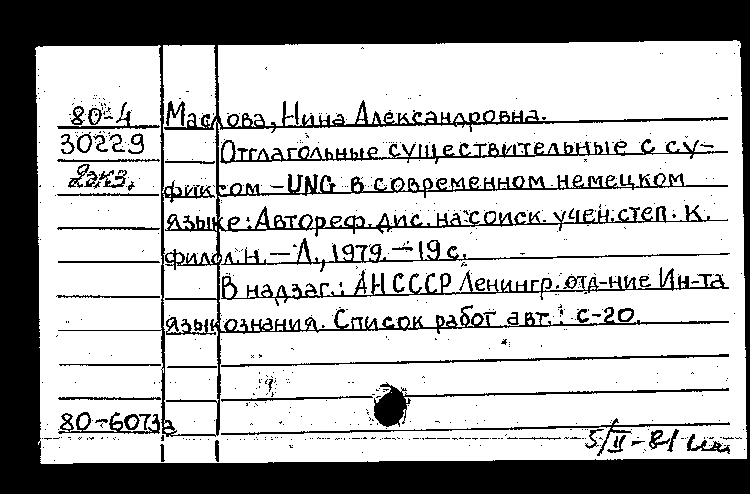 80-4 Маслова, Нина Александровна.
30229 Отглагольные существительные с су-
2экз. фиксом -UNG в современном немецком
языке: Автореф. дис. на соиск. учен. степ. к.
филол. н. — Л., 1979. — 19 с.
В надзаг.: АН СССР Ленингр. отд-ние Ин-та
языкознания. Список работ авт.: с-20.
80-6073а
5/II-81